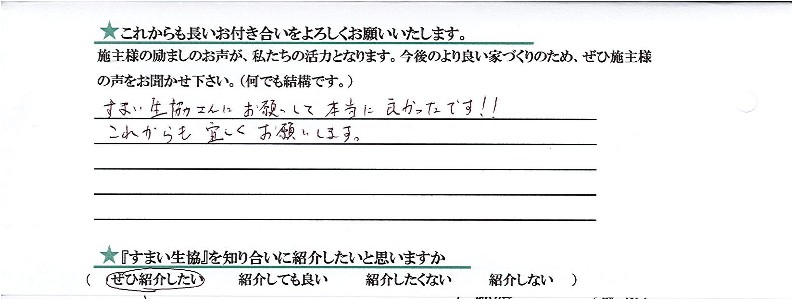 ★これからも長いお付き合いをよろしくお願いいたします。
施主様の励ましのお声が、私たちの活力となります。今後のより良い家づくりのため、ぜひ施主様
の声をお聞かせ下さい。（何でも結構です。）
すまい生協さんにお願いして本当に良かったです!!
これからも宜しくお願いします。
★『すまい生協』を知り合いに紹介したいと思いますか
（ ぜひ紹介したい 紹介しても良い 紹介したくない 紹介しない ）